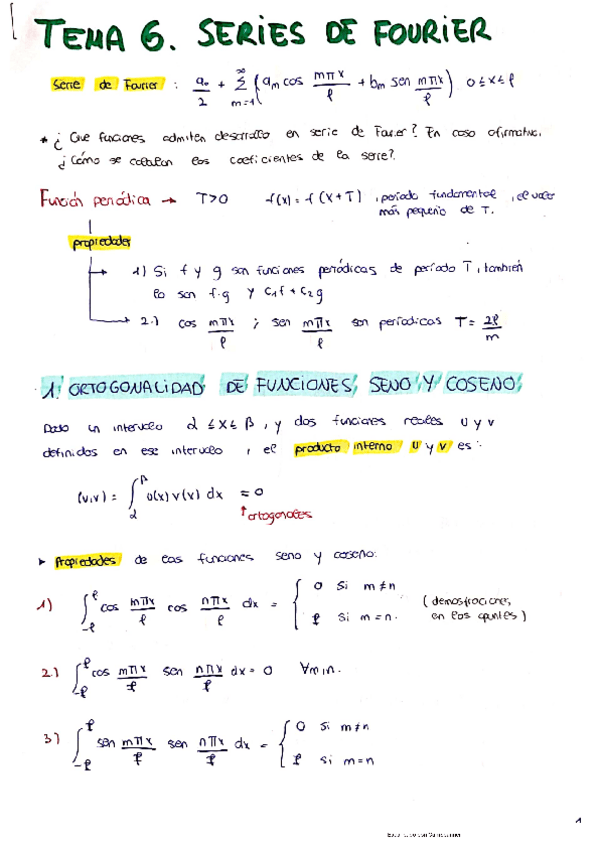 TEMA 6. SERIES DE FOURIER
Serie de Fourier : a₀/2 + ∞Σm=1 (am cos mπx/ℓ + bm sen mπx/ℓ) 0≤x≤ℓ
* ¿Que funciones admiten desarrollo en serie de Fourier? En caso afirmativo.
¿Cómo se calculan los coeficientes de la serie?.
Función periódica → T>0 f(x) = f(x+T) , período fundamental , el valor
más pequeño de T.
propiedades
1) Si f y g son funciones periódicas de período T , también
lo son f·g y c₁f + c₂g
2.) cos mπx/ℓ ; sen mπx/ℓ son periodicas T = 2ℓ/m
1. ORTOGONALIDAD DE FUNCIONES SENO Y COSENO
Dado un intervalo α ≤ x ≤ β , y dos funciones reales u y v
definidas en ese intervalo , el producto interno u y v es:
(u,v) = ∫αβ u(x) v(x) dx = 0
↑ortogonales
➤ Propiedades de las funciones seno y coseno:
1) ∫-ℓℓ cos mπx/ℓ cos nπx/ℓ dx = { 0 si m≠n
ℓ si m=n.
(demostraciones,
en los apuntes)
2.) ∫-ℓℓ cos mπx/ℓ sen nπx/ℓ dx = 0 ∀m,n.
3) ∫-ℓℓ sen mπx/ℓ sen nπx/ℓ dx = { 0 si m≠n
ℓ si m=n
1